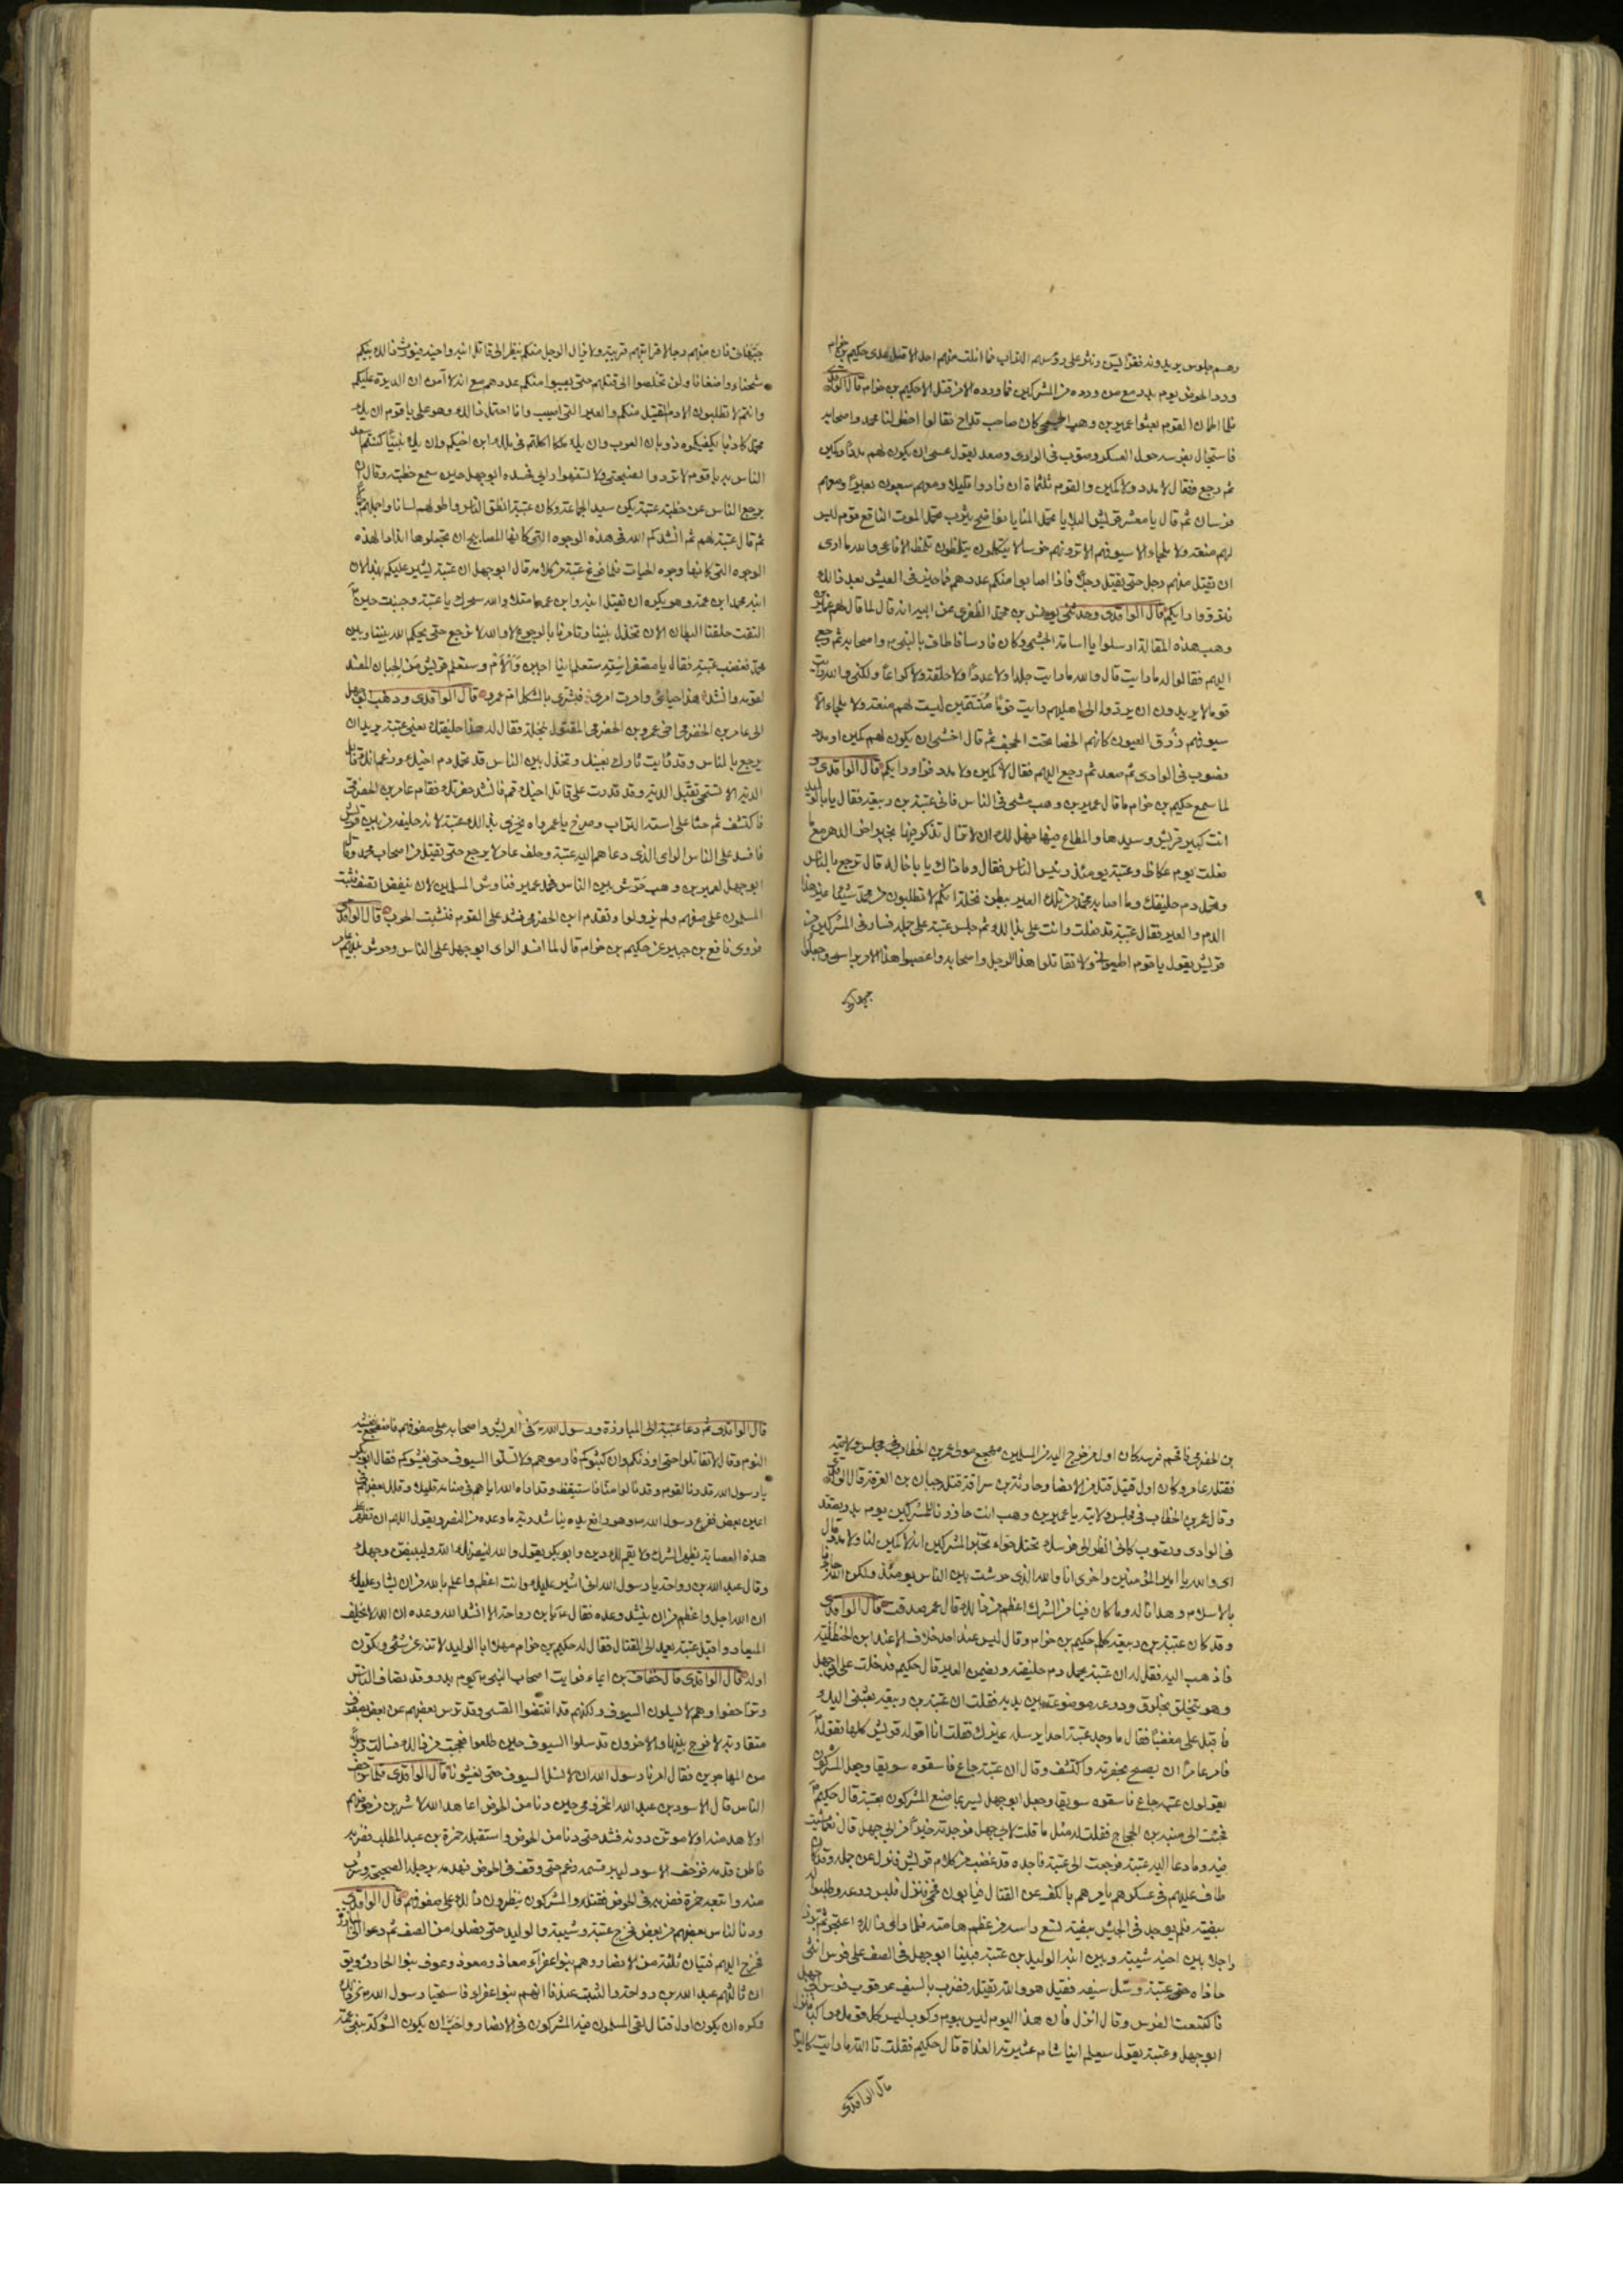 وهم جلوس يريدونه فقرأ يس ونثر على رؤسهم التراب فما انفلت منهم احد الا قتل عدى حكيم بن حزام
ورد الحوض يوم بدر مع من ورده من المشركين فما ورده الا من قتل الا حكيم بن حزام قال الواقدى
فلما اطمان القوم بعثوا عمير بن وهب الجمحى كان صاحب قداح فقالوا احفظ لنا محمد واصحابه
فاستجال بفرسه حول العسكر وصوب فى الوادى وصعد يقول عسى ان يكون لهم مددا وكمين
ثم رجع فقال لا مدد ولا كمين والقوم ثلثمائة ان زادوا قليلا ومعهم سبعون بعيرا ومعهم
فرسان ثم قال يا معشر قريش البلايا تحمل المنايا نواضح يثرب تحمل الموت الناقع قوم ليس
لهم منعة ولا ملجاء الا سيوفهم الا ترونهم خرسا لا يتكلمون يتلمظون تلمظ الافاعى والله ما ارى
ان يقتل منهم رجل حتى يقتل رجلا فاذا اصابوا منكم عددهم فما خير فى العيش بعد ذالك
فروا رايكم قال الواقدى وحدثنى يونس بن محمد الظفرى عن ابيه انه قال لما قال لهم عمير بن
وهب هذه المقالة ارسلوا يا اسامة الجشمى وكان فارسا فاطاف بالنبى واصحابه ثم رجع
اليهم فقالوا له ما رايت قال والله ما رايت جلدا ولا عددا ولا حلقة ولا كراعا ولكنى والله رايت
قوما لا يريدون ان يردوا الى اهليهم رايت قوما مستميتين ليست لهم منعة ولا ملجاء الا
سيوفهم زرق العيون كانهم الحصا تحت الحجف ثم قال اخشى ان يكون لهم كمين او مدد
فصوب فى الوادى ثم صعد ثم رجع اليهم فقال لا كمين ولا مدد فروا رايكم قال الواقدى و
لما سمع حكيم بن حزام ما قال عمير بن وهب مشى فى الناس فاتى عتبة بن ربيعة فقال يا ابا الوليد
انت كبير قريش وسيدها والمطاع فيها فهل لك ان لا تزال تذكر منها بخير اخر الدهر مع ما
فعلت يوم عكاظ وعتبة يومئذ رئيس الناس فقال وما ذاك يا با خالد قال ترجع بالناس
وتحمل دم حليفك وما اصابه محمد من تلك العير ببطن نخلة انكم لا تطلبون من محمد شيئا غير هذا
الدم والعير فقال عتبة قد فعلت وانت على بذالك ثم جلس عتبة على جمله فسار فى المشركين من
قريش يقول يا قوم اطيعونى ولا تقاتلوا هذا الرجل واصحابه واعصبوا هذا الامر براسى واجعلوا
جبنها بى
جبنها بى فان منهم رجالا قرابتهم قريبة ولا يزال الرجل منكم ينظر الى قاتل ابيه واخيه فيورث ذالك بينكم
شحناء واضغانا ولن تخلصوا الى قتلهم حتى يصيبوا منكم عددهم مع انه لا آمن ان الدبرة عليكم
وانتم لا تطلبون الا دم القتيل منكم والعير التى اصيبت وانا احتمل ذالك وهو على يا قوم ان يك
محمد كاذبا يكفيكموه ذوبان العرب وان يك ملكا اكلتم فى ملك ابن اخيكم وان يك نبيا كنتم اسعد
الناس به يا قوم لا تردوا نصيحتى ولا تسفهوا رايى فحسده ابو جهل حين سمع خطبته وقال ان
يرجع الناس عن خطبة عتبة يكن سيد الجماعة وكان عتبة انطق الناس واطولهم لسانا واجملهم جمالا
ثم قال عتبة لهم ثم انشدكم الله فى هذه الوجوه التى كانها المصابيح ان تجعلوها اندادا لهذه
الوجوه التى كانها وجوه الحيات فلما فرغ عتبة من كلامه قال ابو جهل ان عتبة يشير عليكم بهذا لان
ابنه محمد ابن عمه وهو يكره ان يقتل ابنه وابن عمه امتلا والله سحرك يا عتبة وجبنت حين
التقت حلقتا البطان الان تخذل بيننا وتامرنا بالرجوع لا والله لا نرجع حتى يحكم الله بيننا وبين
محمد فغضب عتبة فقال يا مصفر استه ستعلم اينا اجبن والأم وستعلم قريش من الجبان المفسد
لقومه وانشد هذا حياى وامرت امرى فبشرى بالثكل ام عمرو قال الواقدى وذهب ابو جهل
الى عامر بن الحضرمى اخى عمرو بن الحضرمى المقتول بنخلة فقال له هذا حليفك يعنى عتبة يريد ان
يرجع بالناس وقد رايت ثارك بعينك وتخذل بين الناس قد تحمل دم اخيك وزعم انك قابل
الدية الا تستحى تقبل الدية وقد قدرت على قاتل اخيك قم فانشد خفرتك فقام عامر بن الحضرمى
فاكتشف ثم حثا على استه التراب وصرخ يا عمراه يخزى بذالك عتبة لانه حليفه من بين قريش
فافسد على الناس الراى الذى دعاهم اليه عتبة وحلف عامر لا يرجع حتى يقتل من اصحاب محمد وقال
ابو جهل لعمير بن وهب حرش بين الناس فحمل عمير فناوش المسلمين لان ينقض الصف فثبت
المسلمون على صفهم ولم يزولوا وتقدم ابن الحضرمى فشد على القوم فنشبت الحرب قال الواقدى
فروى نافع بن جبير عن حكيم بن حزام قال لما افسد الراى ابو جهل على الناس وحرش بينهم عامر
بن الحضرمى فاقحم فرسه كان اول من خرج اليه من المسلمين مهجع مولى عمر بن الخطاب فى مجلس ولايته
فقتله عامر وكان اول قتيل قتل من الانصار حارثة بن سراقة قتله حبان بن العرقة قال الواقدى
وقال عمر بن الخطاب فى مجلس ولايته يا عمير بن وهب انت حازرنا للمشركين يوم بدر وتصعد
فى الوادى وتصوب كانى انظر الى فرسك تحتك حواء تخبر المشركين انه لا كمين لنا ولا مدد قال
اى والله يا امير المؤمنين واخرى انا والله الذى حرشت بين الناس يومئذ ولكن الله جاءنا
بالاسلام وهدانا له وما كان فينا من الشرك اعظم من ذالك قال عمر صدقت قال الواقدى
وقد كان عتبة بن ربيعة كلم حكيم بن حزام وقال ليس عند احد خلاف الا عند ابن الحنظلية
فاذهب اليه فقل له ان عتبة يحمل دم حليفه ويضمن العير قال حكيم فدخلت على ابى جهل
وهو يتخلق بخلوق ودرعه موضوعة بين يديه فقلت ان عتبة بن ربيعة بعثنى اليك و
فاقبل على مغضبا فقال ما وجد عتبة احدا يرسله غيرك فقلت
فامر عامرا ان يصيح بخفرته واكتشف وقال ان عتبة جاع فاسقوه سويقا وجعل المشركون
يقولون عتبة جاع فاسقوه سويقا وجعل ابو جهل يسر بما صنع المشركون بعتبة قال حكيم
فجئت الى منبه بن الحجاج فقلت له مثل ما قلت لابى جهل فوجدته خيرا من ابى جهل قال نعما مشيت
فيه وما دعا اليه عتبة فرجعت الى عتبة فاجده قد غضب من كلام قريش فنزل عن جمله وقد كان
طاف عليهم فى عسكرهم يامرهم بالكف عن القتال فيابون فحمى فنزل فلبس درعه وطلبوا له
بيضة فلم يوجد فى الجيش بيضة تسع راسه من عظم هامته فلما راى ذالك اعتجر ثم برز
راجلا بين اخيه شيبة وبين ابنه الوليد بن عتبة فبينا ابو جهل فى الصف على فرس انثى
حاذاه حتى عتبة وسل سيفه فقيل هو والله يقتله فضرب بالسيف عرقوب فرس ابى جهل
فاكتسعت الفرس وقال انزل فان هذا اليوم ليس بيوم ركوب ليس كل قومك راكبا فنزل
ابو جهل وعتبة يقول سيعلم اينا شام عشيرته الغداة قال حكيم فقلت تا الله ما رايت كاليوم
قال الواقدى
قال الواقدى ثم دعا عتبة الى المبارزة ورسول الله ص فى العريش واصحابه على صفوفهم فاضطجع فغشيه
النوم وقال لا تقاتلوا حتى اوذنكم وان كثبوكم فارموهم ولا تسلوا السيوف حتى يغشوكم فقال ابو بكر
يا رسول الله قد دنا القوم وقد نالوا منا فاستيقظ وقد اراه الله اياهم فى منامه قليلا وقلل بعضهم فى
اعين بعض ففزع رسول الله ص وهو رافع يديه يناشد ربه ما وعده من النصر ويقول اللهم ان تظهر على
هذه العصابة يظهر الشرك ولا يقم لك دين وابو بكر يقول والله لينصرنك الله وليبيضن وجهك
وقال عبد الله بن رواحة يا رسول الله انى اشير عليك وانت اعظم واعلم بالله من ان يشار عليك
ان الله اجل واعظم من ان ينشد وعده فقال ع يا ابن رواحة الا انشد الله وعده ان الله لا يخلف
الميعاد واقبل عتبة يعمد الى القتال فقال له حكيم بن حزام مهلا ابا الوليد لا تنه عن شئ وتكون
اوله قال الواقدى قال خفاف بن ايماء فرايت اصحاب النبى ص يوم بدر وقد تصاف الناس
وتزاحفوا وهم لا يسلون السيوف ولكنهم قد انتضوا القسى وقد ترس بعضهم عن بعض بصفوف
متقاربة لا فرج بينها والاخرون قد سلوا السيوف حين طلعوا فعجبت من ذالك فسالت رجلا
من المهاجرين فقال امرنا رسول الله ان لا نسل السيوف حتى يغشونا قال الواقدى فلما تزاحف
الناس قال الاسود بن عبد الله المخزومى حين دنا من الحوض اعاهد الله لاشربن من حوضهم
او لاهدمنه او لاموتن دونه فشد حتى دنا من الحوض واستقبله حمزة بن عبد المطلب فضربه
فاطن قدمه فزحف الاسود ليبر قسمه زعم حتى وقف فى الحوض فهدمه برجله الصحيحة وشرب
منه واتبعه حمزة فضربه فى الحوض فقتله والمشركون ينظرون ذالك على صفوفهم قال الواقدى
ودنا الناس بعضهم من بعض فخرج عتبة وشيبة والوليد حتى فصلوا من الصف ثم دعوا الى المبارزة
فخرج اليهم فتيان ثلثة من الانصار وهم بنو اعفراء معاذ ومعوذ وعوف بنو الحارث ويق
ان ثالثهم عبد الله بن رواحة والثبت عندنا انهم بنو اعفراء فاستحيا رسول الله ص من ذالك
وكره ان يكون اول قتال لقى المسلمون فيه المشركون فى الانصار واحب ان يكون الشوكة ببنى عمه